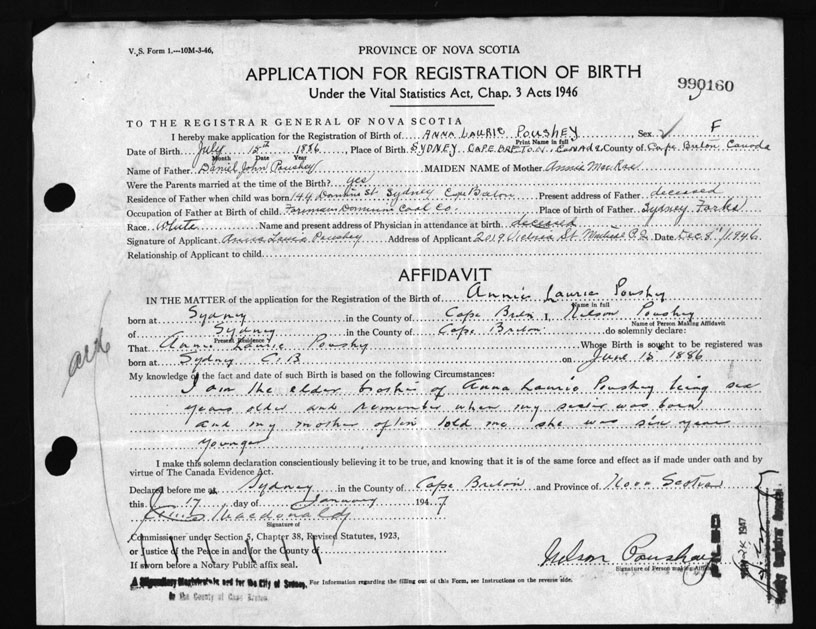 V. S. Form 1.—10M-3-46,
PROVINCE OF NOVA SCOTIA
APPLICATION FOR REGISTRATION OF BIRTH
990160
Under the Vital Statistics Act, Chap. 3 Acts 1946
TO THE REGISTRAR GENERAL OF NOVA SCOTIA
I hereby make application for the Registration of Birth of ANNA LAURIE POUSHEY Sex F
Print Name in full
Date of Birth July 15th 1886, Place of Birth SYDNEY CAPE BRETON CANADA County of Cape Breton, Canada
Month Date Year
Name of Father Daniel John Poushey MAIDEN NAME of Mother Annie MacRae
Were the Parents married at the time of Birth? yes
Residence of Father when child was born 44 Dominion St. Sydney Cape Breton Present address of Father deceased
Occupation of Father at Birth of child Foreman Dominion Coal Co. Place of birth of Father Sydney Forks
Race White Name and present address of Physician in attendance at birth deceased
Signature of Applicant Anna Laurie Poushey Address of Applicant 2019 Victoria St. Date Dec. 8th, 1946
Relationship of Applicant to child
AFFIDAVIT
IN THE MATTER of the application for the Registration of the Birth of Annie Laurie Poushey
Name in full
born at Sydney in the County of Cape Breton I, Nelson Poushey
Name of Person Making Affidavit
of Sydney in the County of Cape Breton do solemnly declare:
Present Residence
That Annie Laurie Poushey Whose Birth is sought to be registered was
born at Sydney C.B on June 15 1886
My knowledge of the fact and date of such Birth is based on the following Circumstances:
I am the elder brother of Anna Laurie Poushey being six
years older and remember when my sister was born
and my mother often told me she was six years
younger
I make this solemn declaration conscientiously believing it to be true, and knowing that it is of the same force and effect as if made under oath and by
virtue of The Canada Evidence Act.
Declared before me at Sydney in the County of Cape Breton and Province of Nova Scotia
this 17 day of January 1947
Macdonald
Signature of
Commissioner under Section 5, Chapter 38, Revised Statutes, 1923,
or Justice of the Peace in and for the County of
If sworn before a Notary Public affix seal.
Nelson Poushey
Signature of Person making Affidavit
A Stipendiary Magistrate in and for the City of Sydney,
In the County of Cape Breton
For Information regarding the filling out of this Form, see Instructions on the reverse side.
FILED
1947
Deputy Registrar General